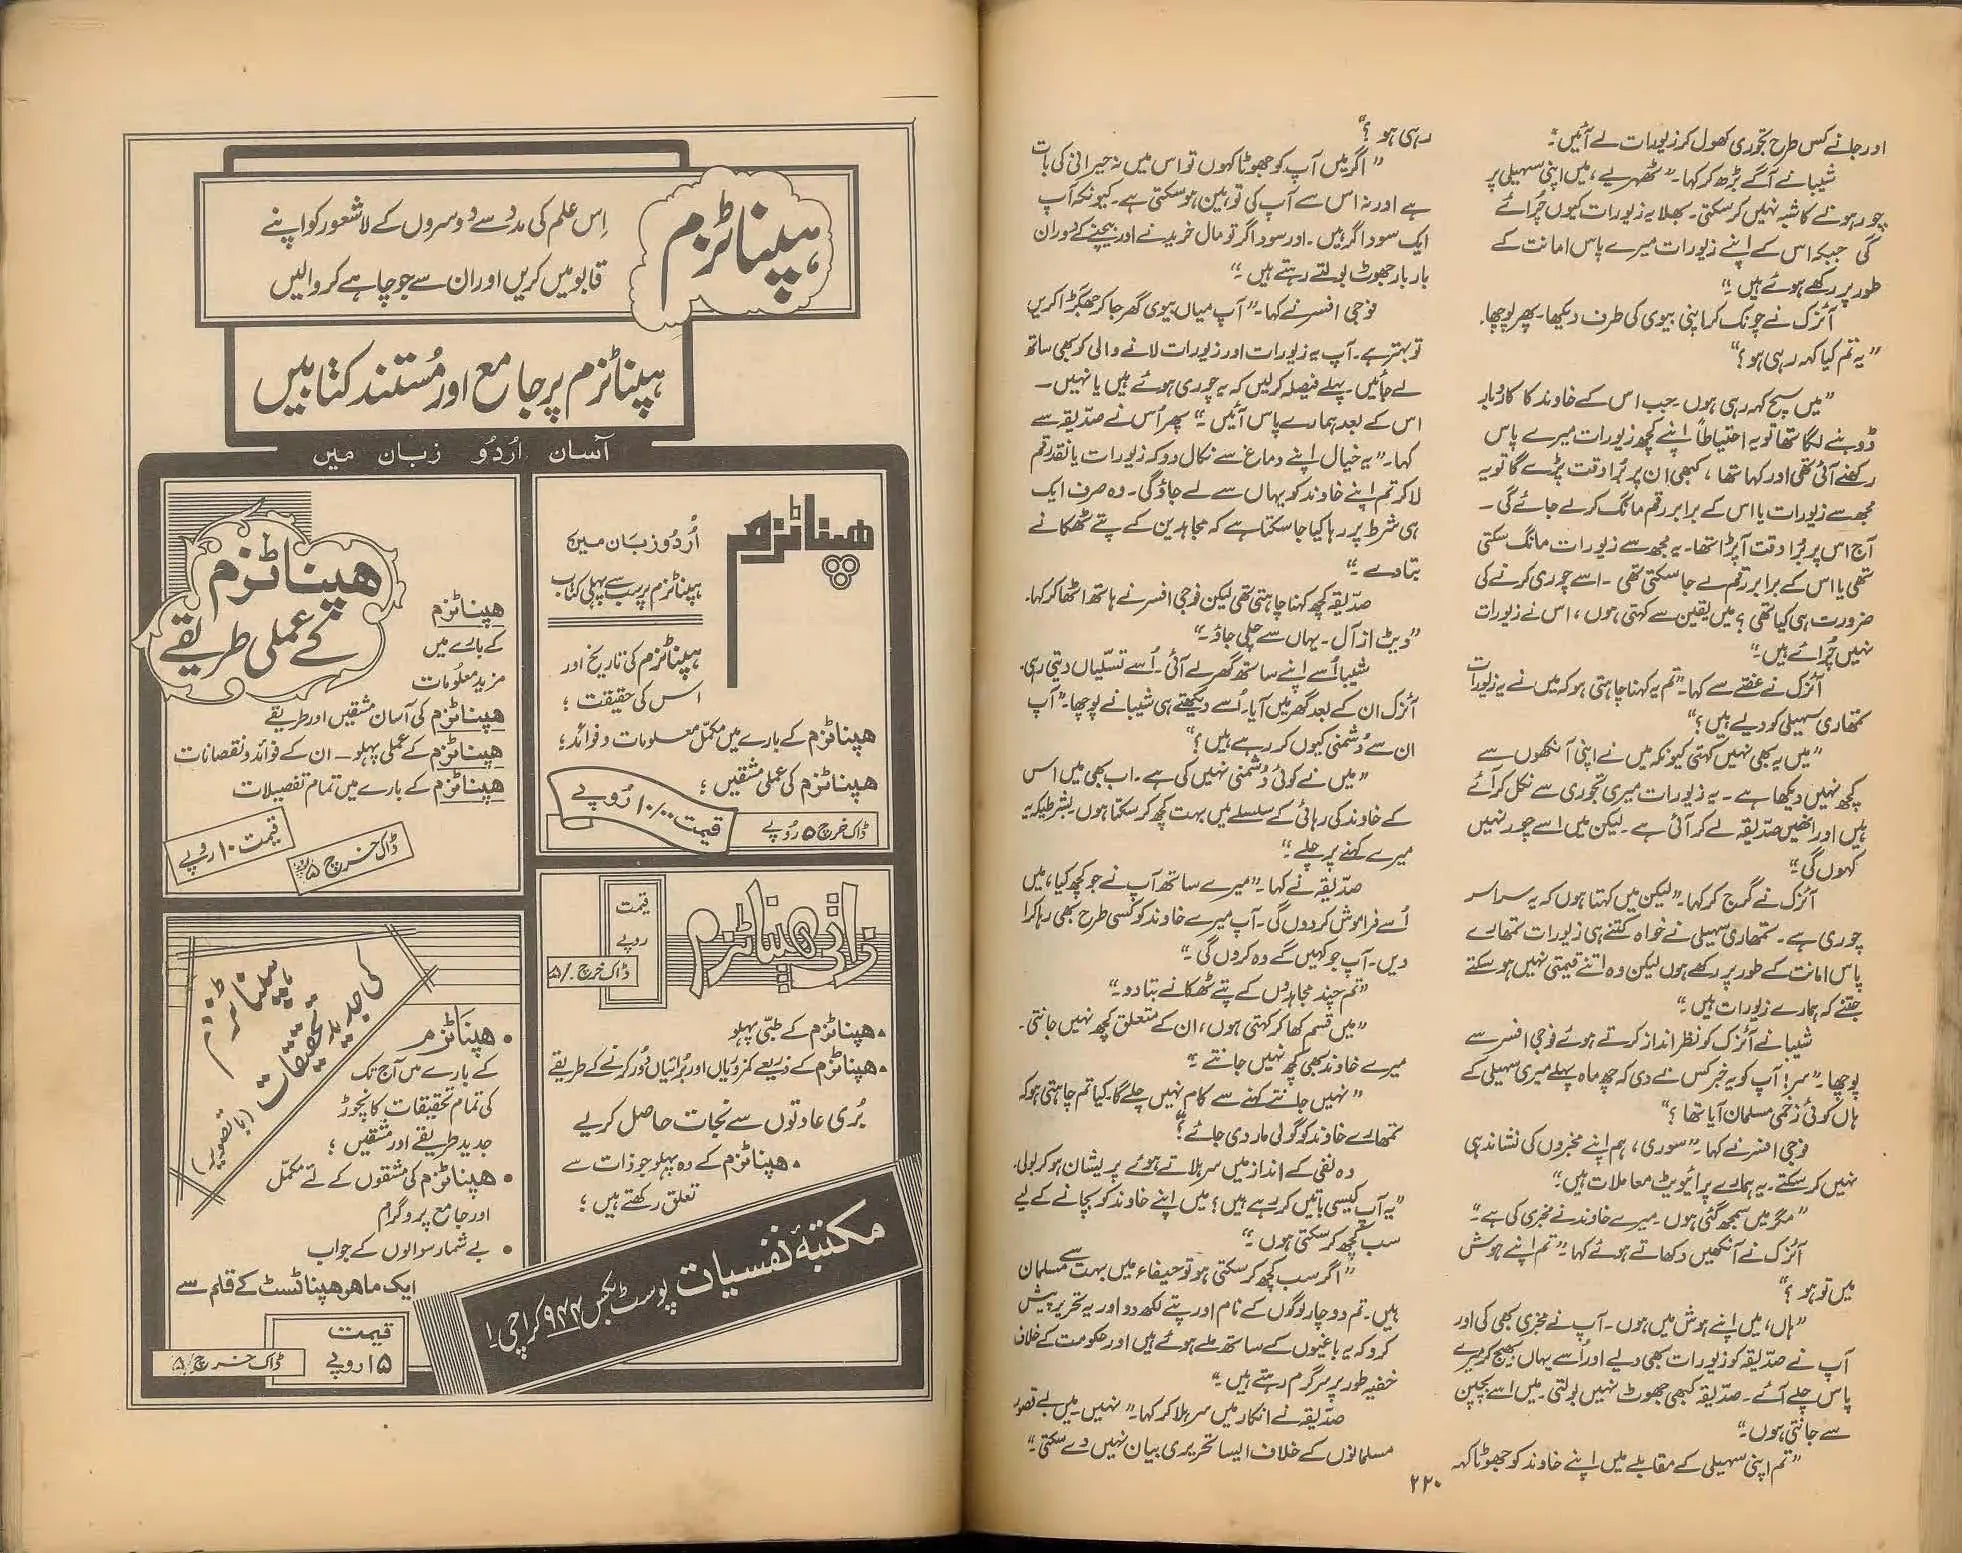 اور جانے کس طرح تجوری کھول کر زیورات لے آئیں۔"
شیبا نے آگے بڑھ کر کہا۔ "ٹھہریے، میں اپنی سہیلی پر
چور ہونے کا شبہ نہیں کر سکتی۔ بھلا یہ زیورات کیوں چُرائے
گی جبکہ اس کے اپنے زیورات میرے پاس امانت کے
طور پر رکھے ہوئے ہیں۔"
آئزک نے چونک کر اپنی بیوی کی طرف دیکھا۔ پھر پوچھا۔
"یہ تم کیا کہہ رہی ہو؟"
"میں سچ کہہ رہی ہوں۔ جب اس کے خاوند کا کاروبار
ڈوبنے لگا تھا تو یہ احتیاطاً اپنے کچھ زیورات میرے پاس
رکھنے آئی تھی اور کہا تھا، کبھی ان پر بُرا وقت پڑے گا تو یہ
مجھ سے زیورات یا اس کے برابر رقم مانگ کر لے جائے گی۔
آج اس پر بُرا وقت آ پڑا تھا۔ یہ مجھ سے زیورات مانگ سکتی
تھی یا اس کے برابر رقم لے جا سکتی تھی۔ اسے چوری کرنے کی
ضرورت ہی کیا تھی؟ میں یقین سے کہتی ہوں، اس نے زیورات
نہیں چُرائے ہیں۔"
آئزک نے غصّے سے کہا۔ "تم یہ کہنا چاہتی ہو کہ میں نے یہ زیورات
تمھاری سہیلی کو دیے ہیں؟"
"میں یہ بھی نہیں کہتی کیونکہ میں نے اپنی آنکھوں سے
کچھ نہیں دیکھا ہے۔ یہ زیورات میری تجوری سے نکل کر آئے
ہیں اور انھیں صدّیقہ لے کر آئی ہے۔ لیکن میں اسے چور نہیں
کہوں گی۔"
آئزک نے گرج کر کہا۔ "لیکن میں کہتا ہوں کہ یہ سراسر
چوری ہے۔ تمھاری سہیلی نے خواہ کتنے ہی زیورات تمھارے
پاس امانت کے طور پر رکھے ہوں لیکن وہ اتنے قیمتی نہیں ہو سکتے
جتنے کہ ہمارے زیورات ہیں۔"
شیبا نے آئزک کو نظر انداز کرتے ہوئے فوجی افسر سے
پوچھا۔ "سر! آپ کو یہ خبر کس نے دی کہ چھ ماہ پہلے میری سہیلی کے
ہاں کوئی زخمی مسلمان آیا تھا؟"
فوجی افسر نے کہا۔ "سوری، ہم اپنے مخبروں کی نشاندہی
نہیں کر سکتے۔ یہ ہمارے پرائیویٹ معاملات ہیں۔"
"مگر میں سمجھ گئی ہوں۔ میرے خاوند نے مخبری کی ہے۔"
آئزک نے آنکھیں دکھاتے ہوئے کہا۔ "تم اپنے ہوش
میں تو ہو؟"
"ہاں، میں اپنے ہوش میں ہوں۔ آپ نے مخبری بھی کی اور
آپ نے صدّیقہ کو زیورات بھی دیے اور اُسے یہاں بھیج کر میرے
پاس چلے آئے۔ صدّیقہ کبھی جھوٹ نہیں بولتی۔ میں اسے بچپن
سے جانتی ہوں۔"
"تم اپنی سہیلی کے مقابلے میں اپنے خاوند کو جھوٹا کہہ
رہی ہو؟"
"اگر میں آپ کو جھوٹا کہوں تو اس میں نہ حیرانی کی بات
ہے اور نہ اس سے آپ کی توہین ہو سکتی ہے۔ کیونکہ آپ
ایک سوداگر ہیں۔ اور سوداگر تو مال خریدنے اور بیچنے کے دوران
بار بار جھوٹ بولتے رہتے ہیں۔"
فوجی افسر نے کہا۔ "آپ میاں بیوی گھر جا کر جھگڑا کریں
تو بہتر ہے۔ آپ یہ زیورات اور زیورات لانے والی کو بھی ساتھ
لے جائیں۔ پہلے فیصلہ کر لیں کہ یہ چوری ہوئے ہیں یا نہیں۔
اس کے بعد ہمارے پاس آئیں۔" پھر اُس نے صدّیقہ سے
کہا۔ "یہ خیال اپنے دماغ سے نکال دو کہ زیورات یا نقد رقم
لا کر تم اپنے خاوند کو یہاں سے لے جاؤ گی۔ وہ صرف ایک
ہی شرط پر رہا کیا جا سکتا ہے کہ مجاہدین کے پتے ٹھکانے
بتا دے۔"
صدّیقہ کچھ کہنا چاہتی تھی لیکن فوجی افسر نے ہاتھ اٹھا کر کہا۔
"دیٹ از آل۔ یہاں سے چلی جاؤ۔"
شیبا اُسے اپنے ساتھ گھر لے آئی۔ اُسے تسلّیاں دیتی رہی۔
آئزک ان کے بعد گھر میں آیا۔ اُسے دیکھتے ہی شیبا نے پوچھا۔ "آپ
ان سے دُشمنی کیوں کر رہے ہیں؟"
"میں نے کوئی دُشمنی نہیں کی ہے۔ اب بھی میں اس
کے خاوند کی رہائی کے سلسلے میں بہت کچھ کر سکتا ہوں۔ بشرطیکہ یہ
میرے کہنے پر چلے۔"
صدّیقہ نے کہا۔ "میرے ساتھ آپ نے جو کچھ کیا، میں
اُسے فراموش کر دوں گی۔ آپ میرے خاوند کو کسی طرح بھی رہا کرا
دیں۔ آپ جو کہیں گے وہ کروں گی۔"
"تم چند مجاہدوں کے پتے ٹھکانے بتا دو۔"
"میں قسم کھا کر کہتی ہوں، ان کے متعلق کچھ نہیں جانتی۔
میرے خاوند بھی کچھ نہیں جانتے۔"
"نہیں جانتے کہنے سے کام نہیں چلے گا۔ کیا تم چاہتی ہو کہ
تمھارے خاوند کو گولی مار دی جائے؟"
وہ نفی کے انداز میں سر ہلاتے ہوئے پریشان ہو کر بولی۔
"یہ آپ کیسی باتیں کر رہے ہیں؟ میں اپنے خاوند کو بچانے کے لیے
سب کچھ کر سکتی ہوں۔"
"اگر سب کچھ کر سکتی ہو تو حیفاء میں بہت سے مسلمان
ہیں۔ تم دو چار لوگوں کے نام اور پتے لکھ دو اور یہ تحریر پیش
کرو کہ یہ باغیوں کے ساتھ ملے ہوئے ہیں اور حکومت کے خلاف
خفیہ طور پر سرگرم رہتے ہیں۔"
صدّیقہ نے انکار میں سر ہلا کر کہا۔ "نہیں۔ میں بے قصور
مسلمانوں کے خلاف ایسا تحریری بیان نہیں دے سکتی۔"
۲۲۰
ہپناٹزم
اِس علم کی مدد سے دوسروں کے لاشعور کو اپنے
قابو میں کریں اور ان سے جو چاہے کروالیں
ہپناٹزم پر جامع اور مُستند کتابیں
آسان اُردُو زبان میں
ھپناٹزم
اُردُو زبان میں
ہپناٹزم پر سب سے پہلی کتاب
ہپناٹزم کی تاریخ اور
اس کی حقیقت؛
ھپناٹزم کے بارے میں مکمّل معلومات و فوائد؛
ھپناٹزم کی عملی مشقیں؛
قیمت ۱۰/۰۰ رُوپے
ڈاک خرچ ۵ رُوپے
ھپناٹزم
کے عملی طریقے
ھپناٹزم
کے بارے میں
مزید معلُومات
ھپناٹزم کی آسان مشقیں اور طریقے
ھپناٹزم کے عملی پہلو – ان کے فوائد و نقصانات
ھپناٹزم کے بارے میں تمام تفصیلات
قیمت ۱۰ روپے
ڈاک خرچ ۵ روپے
ذاتی ھپناٹزم
قیمت
روپے
ڈاک خرچ ۵/۰
• ھپناٹزم کے طبّی پہلو
• ھپناٹزم کے ذریعے کمزوریاں اور بُرائیاں دُور کرنے کے طریقے
بُری عادتوں سے نجات حاصل کریے
• ھپناٹزم کے وہ پہلو جو ذات سے
تعلق رکھتے ہیں؛
ہپناٹزم
کی جدید تحقیقات
(با تصویر)
• ھپناٹزم
کے بارے میں آج تک
کی تمام تحقیقات کا نچوڑ
جدید طریقے اور مشقیں؛
• ھپناٹزم کی مشقوں کے لئے مکمّل
اور جامع پروگرام
• بے شمار سوالوں کے جواب
ایک ماھر ھپناٹسٹ کے قلم سے
قیمت
۱۵ روپے
ڈاک خرچ ۵/
مکتبۂ نفسیات پوسٹ بکس ۹۴۴ کراچی ۱